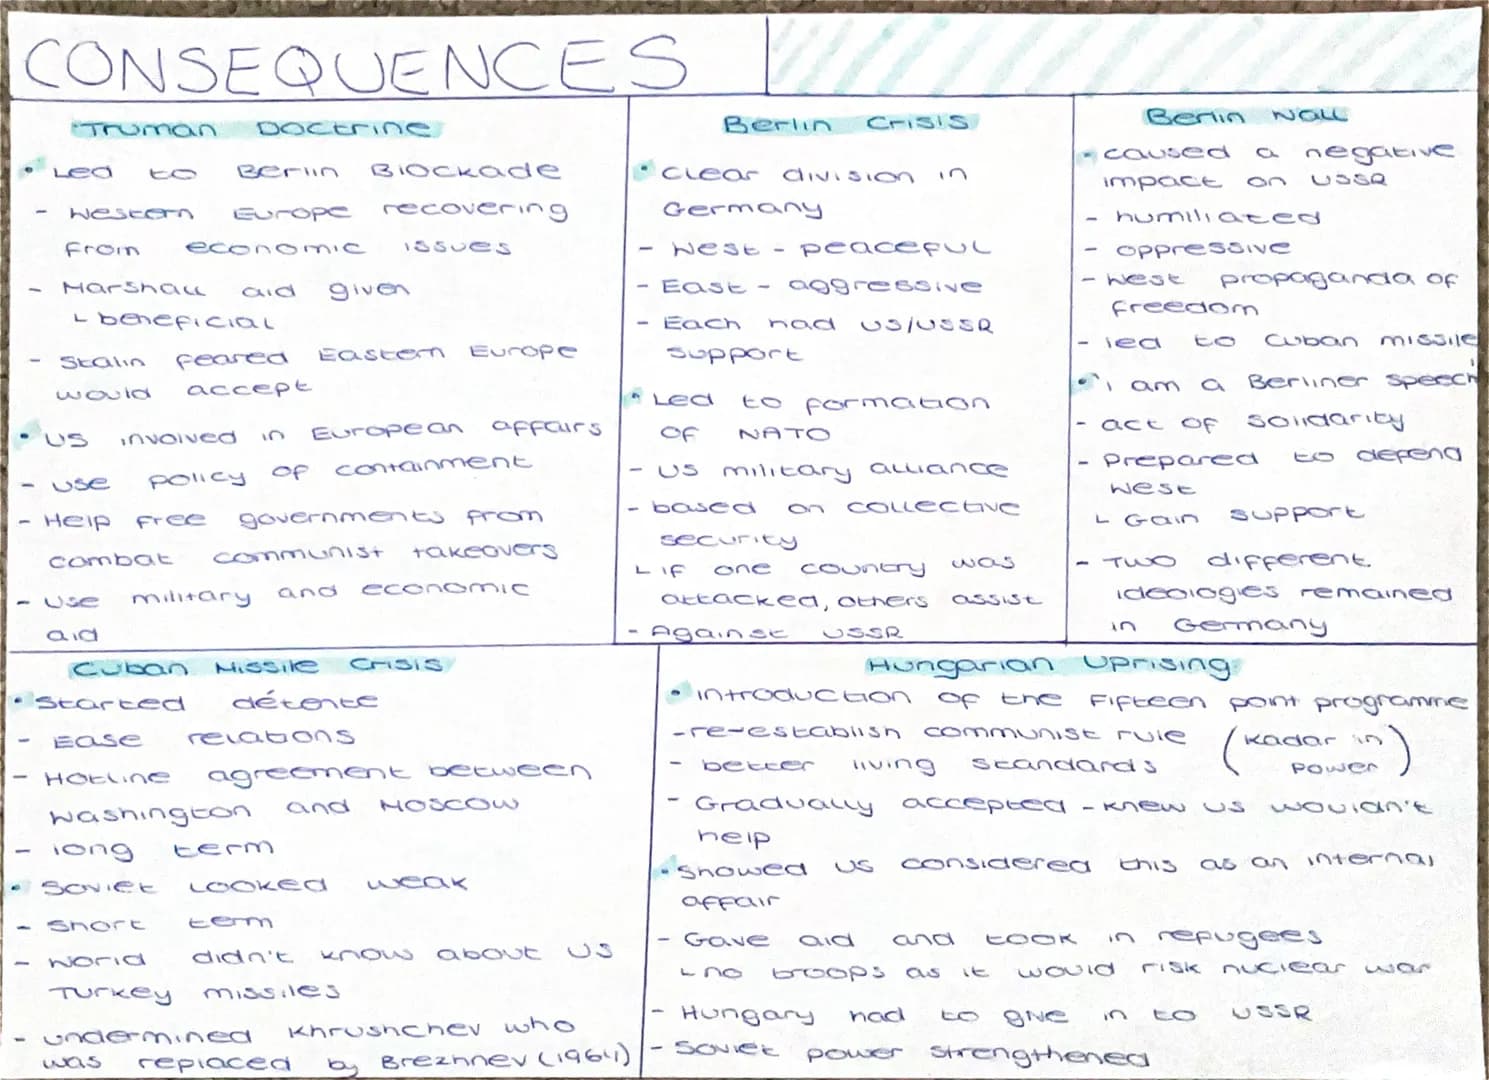 CONSEQUENCES
Truman Doctrine
• Led to Berlin Blockade
- Western Europe recovering
from economic issues
- Marshall aid given
↳ beneficial
- Stalin feared Eastern Europe
would accept
• US involved in European affairs
- use policy of containment
- Help free governments from
combat communist takeovers
- Use military and economic
aid
Berlin Crisis
• Clear division in
Germany
- West - peaceful
- East - aggressive
- Each had US/USSR
support
• Led to formation
OF NATO
- US military alliance
- based on collective
security
↳ if one country was
attacked, others assist
- Against USSR
Berlin Wall
• caused a negative
impact on USSR
- humiliated
- oppressive
- West propaganda of
freedom
- led to Cuban missile
• 'i am a Berliner' speech
- act of solidarity
- Prepared to defend
West
↳ Gain support
- Two different
ideologies remained
in Germany
Cuban Missile Crisis
• Started détente
- Ease relations
- Hotline agreement between
Washington and Moscow
- long term
• Soviet Looked weak
- short term
- World didn't know about US
Turkey missiles
- undermined Khrushchev who
was replaced by Brezhnev (1964)
Hungarian Uprising
• introduction of the Fifteen point programme
- re-establish communist rule (Kadar in
- better living standards power)
- Gradually accepted - knew US wouldn't
help
• Showed US considered this as an internal
affair
- Gave aid and took in refugees
↳ no troops as it would risk nuclear war
- Hungary had to give in to USSR
- Soviet power strengthened